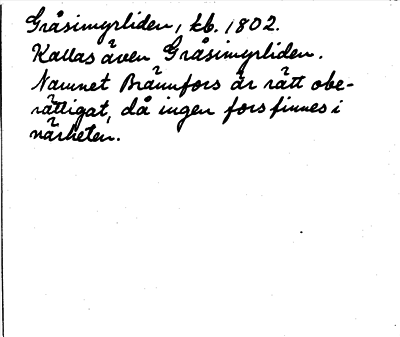 Gråsimyrliden, kb. 1802.
Kallas även Gråsimyrliden.
Namnet Brännfors är rätt obe-
rättigat, då ingen fors finnes i
närheten.